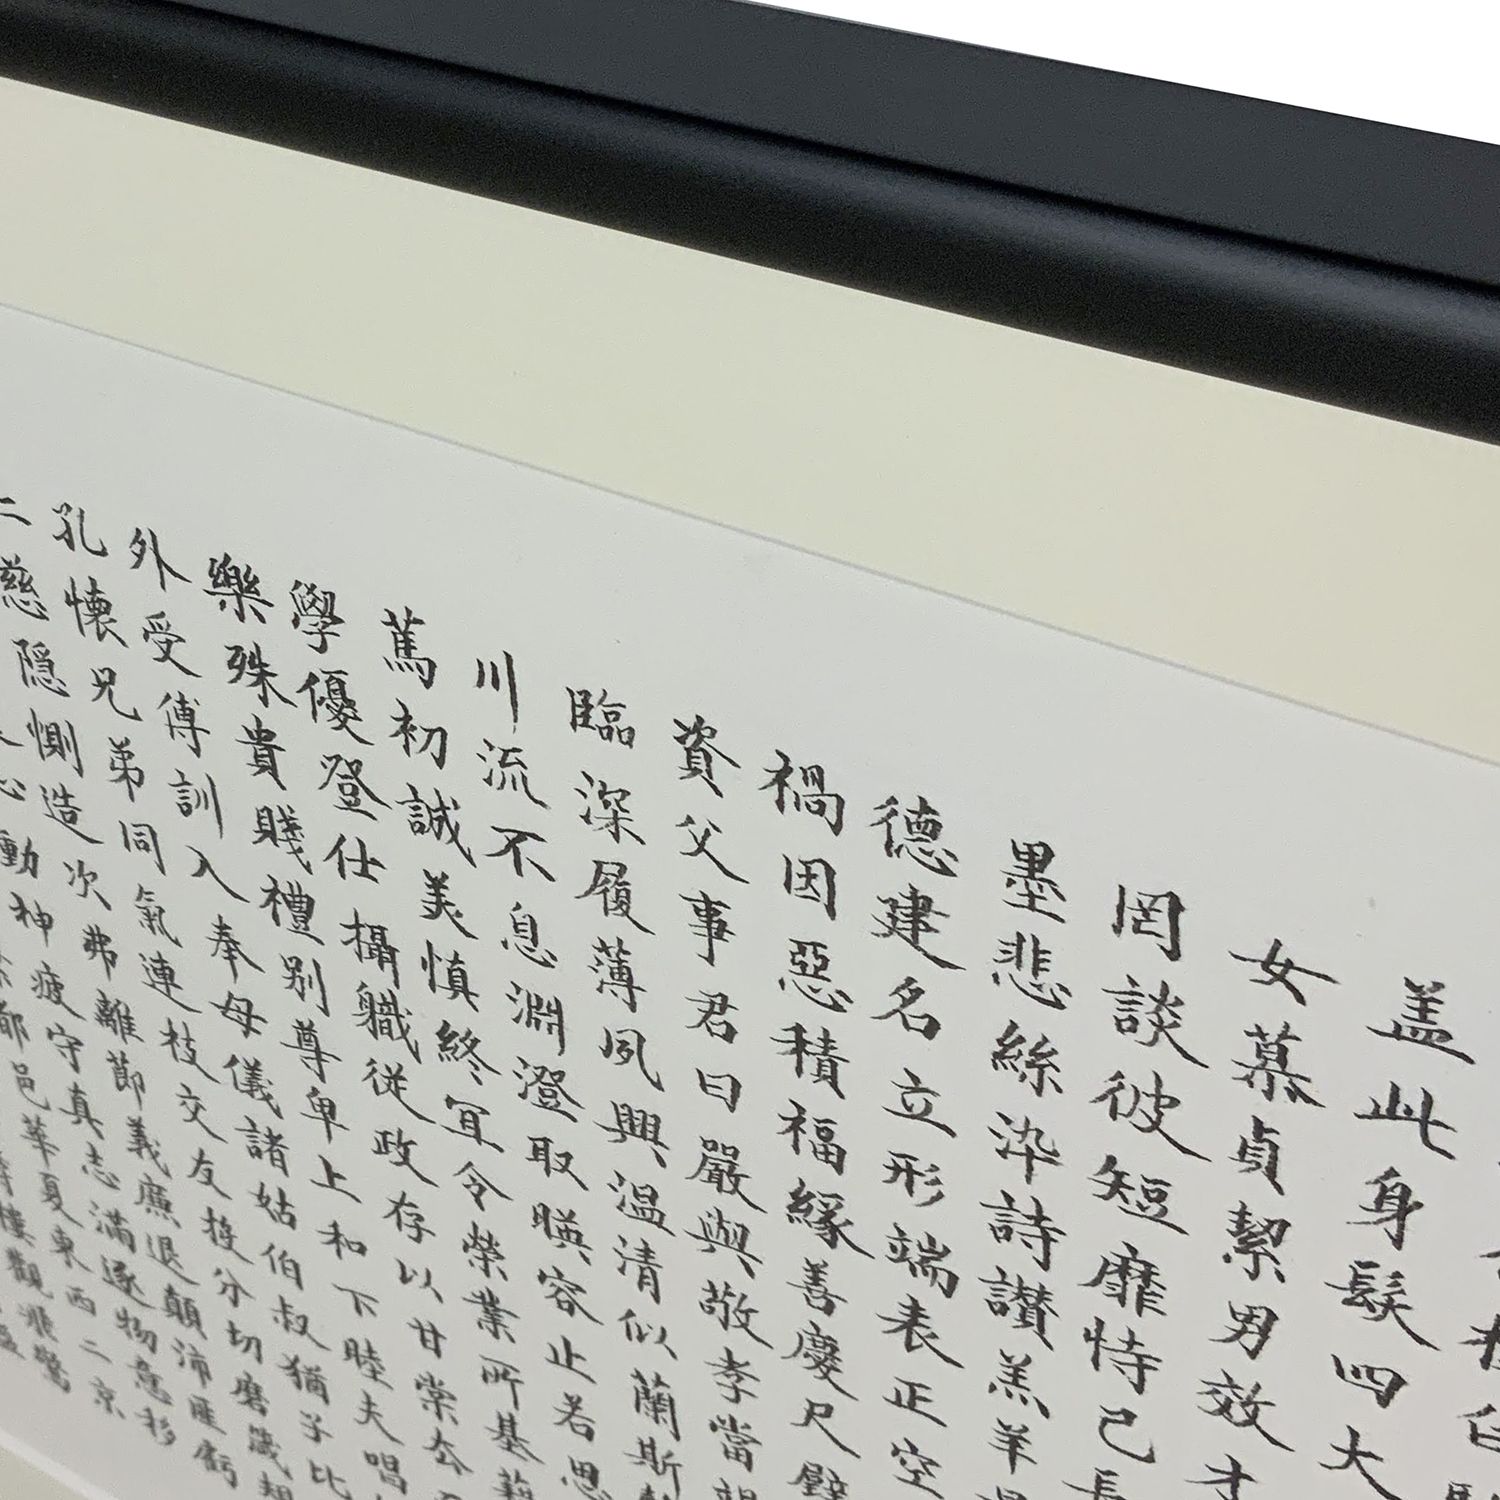 盖此身髮四大
女慕貞絜男效才
罔談彼短靡恃己長
墨悲絲染詩讚羔羊
德建名立形端表正空
禍因惡積福緣善慶尺璧
資父事君曰嚴與敬孝當
臨深履薄夙興溫清似蘭斯
川流不息淵澄取暎容止若思
篤初誠美慎終宜令榮業所基藉
學優登仕攝職從政存以甘棠去
樂殊貴賤禮別尊卑上和下睦夫唱
外受傅訓入奉母儀諸姑伯叔猶子比
孔懷兄弟同氣連枝交友投分切磨箴規
慈隱惻造次弗離節義廉退顛沛匪虧
心動神疲守真志滿逐物意移
都邑華夏東西二京
樓觀飛驚